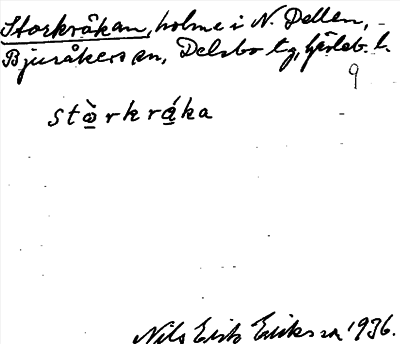 Storkråkan, holme i N. Dellen,
Bjuråkers sn, Delsbo tg, Gävleb. l.
9
stò̱rkrá̱ka
Nils Erik Eriksson 1936.